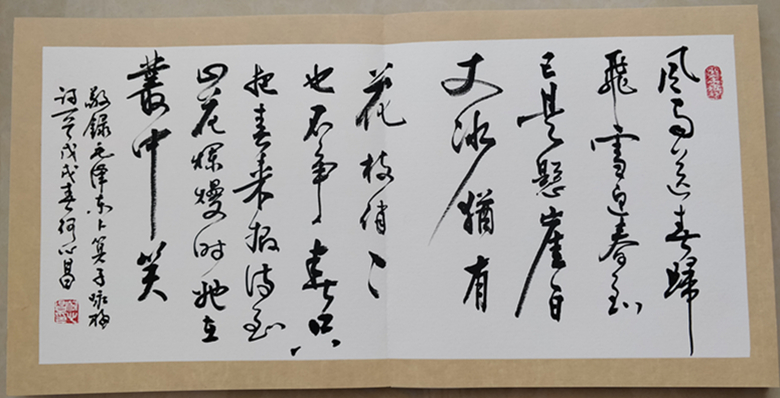 风雨送春歸
飛雪迎春到
已是懸崖百
丈冰猶有
花枝俏〻
也不争春只
把春来报待到
山花爛熳时她在
叢中笑
敬錄毛澤东卜算子咏梅
詞一首戊戌春何心昌